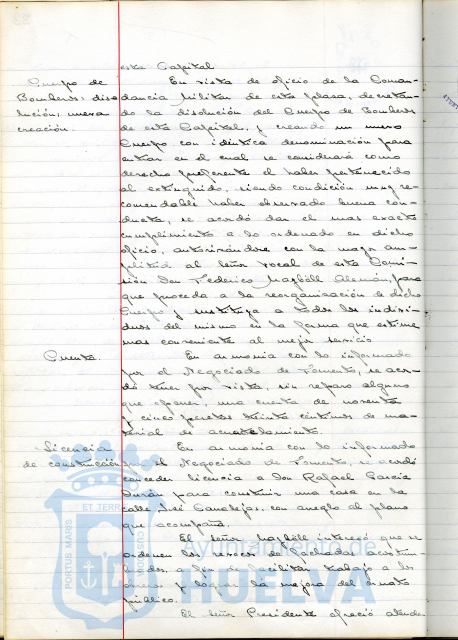 esta Capital
Cuerpo de
Bomberos: diso-
lución, nueva
creación.
En vista de oficio de la Coman-
dancia Militar de esta plaza, decretan-
do la disolución del Cuerpo de Bomberos
de esta Capital, y creando un nuevo
Cuerpo con idéntica denominación para
entrar en el cual se considerará como
derecho preferente el haber pertenecido
al extinguido, siendo condición muy re-
comendable haber observado buena con-
ducta, se acordó dar el mas exacto
cumplimiento a lo ordenado en dicho
oficio, autorizándose con la mayor am-
plitud al Señor Vocal de esta Comi-
sión Don Federico Alemán, para
que proceda a la reorganización de dicho
Cuerpo y sustituya a todos los indivi-
duos del mismo en la forma que estime
mas conveniente al mejor servicio
Cuenta.
En armonia con lo informado
por el Negociado de Fomento, se acor-
dó tener por vista, sin reparo alguno
que oponer, una cuenta de noventa
y cinco pesetas treinta céntimos de ma-
terial de acuartelamiento.
Licencia
de construcción
En armonia con lo informado
por el Negociado de Fomento, se acordó
conceder licencia a Don Rafael Garcia
Durán para construir una casa en la
calle José Canalejas, con arreglo al plano
que acompaña.
El Señor interesó que se
ordenen los revocos de fachadas acostum-
brados, a fin de facilitar trabajo a los
obreros y lograr la mejora del ornato
público.
El Señor Presidente ofreció atende-
PORTUS MARIS ET TERRAE CUSTODIA
Ayuntamiento de
HUELVA